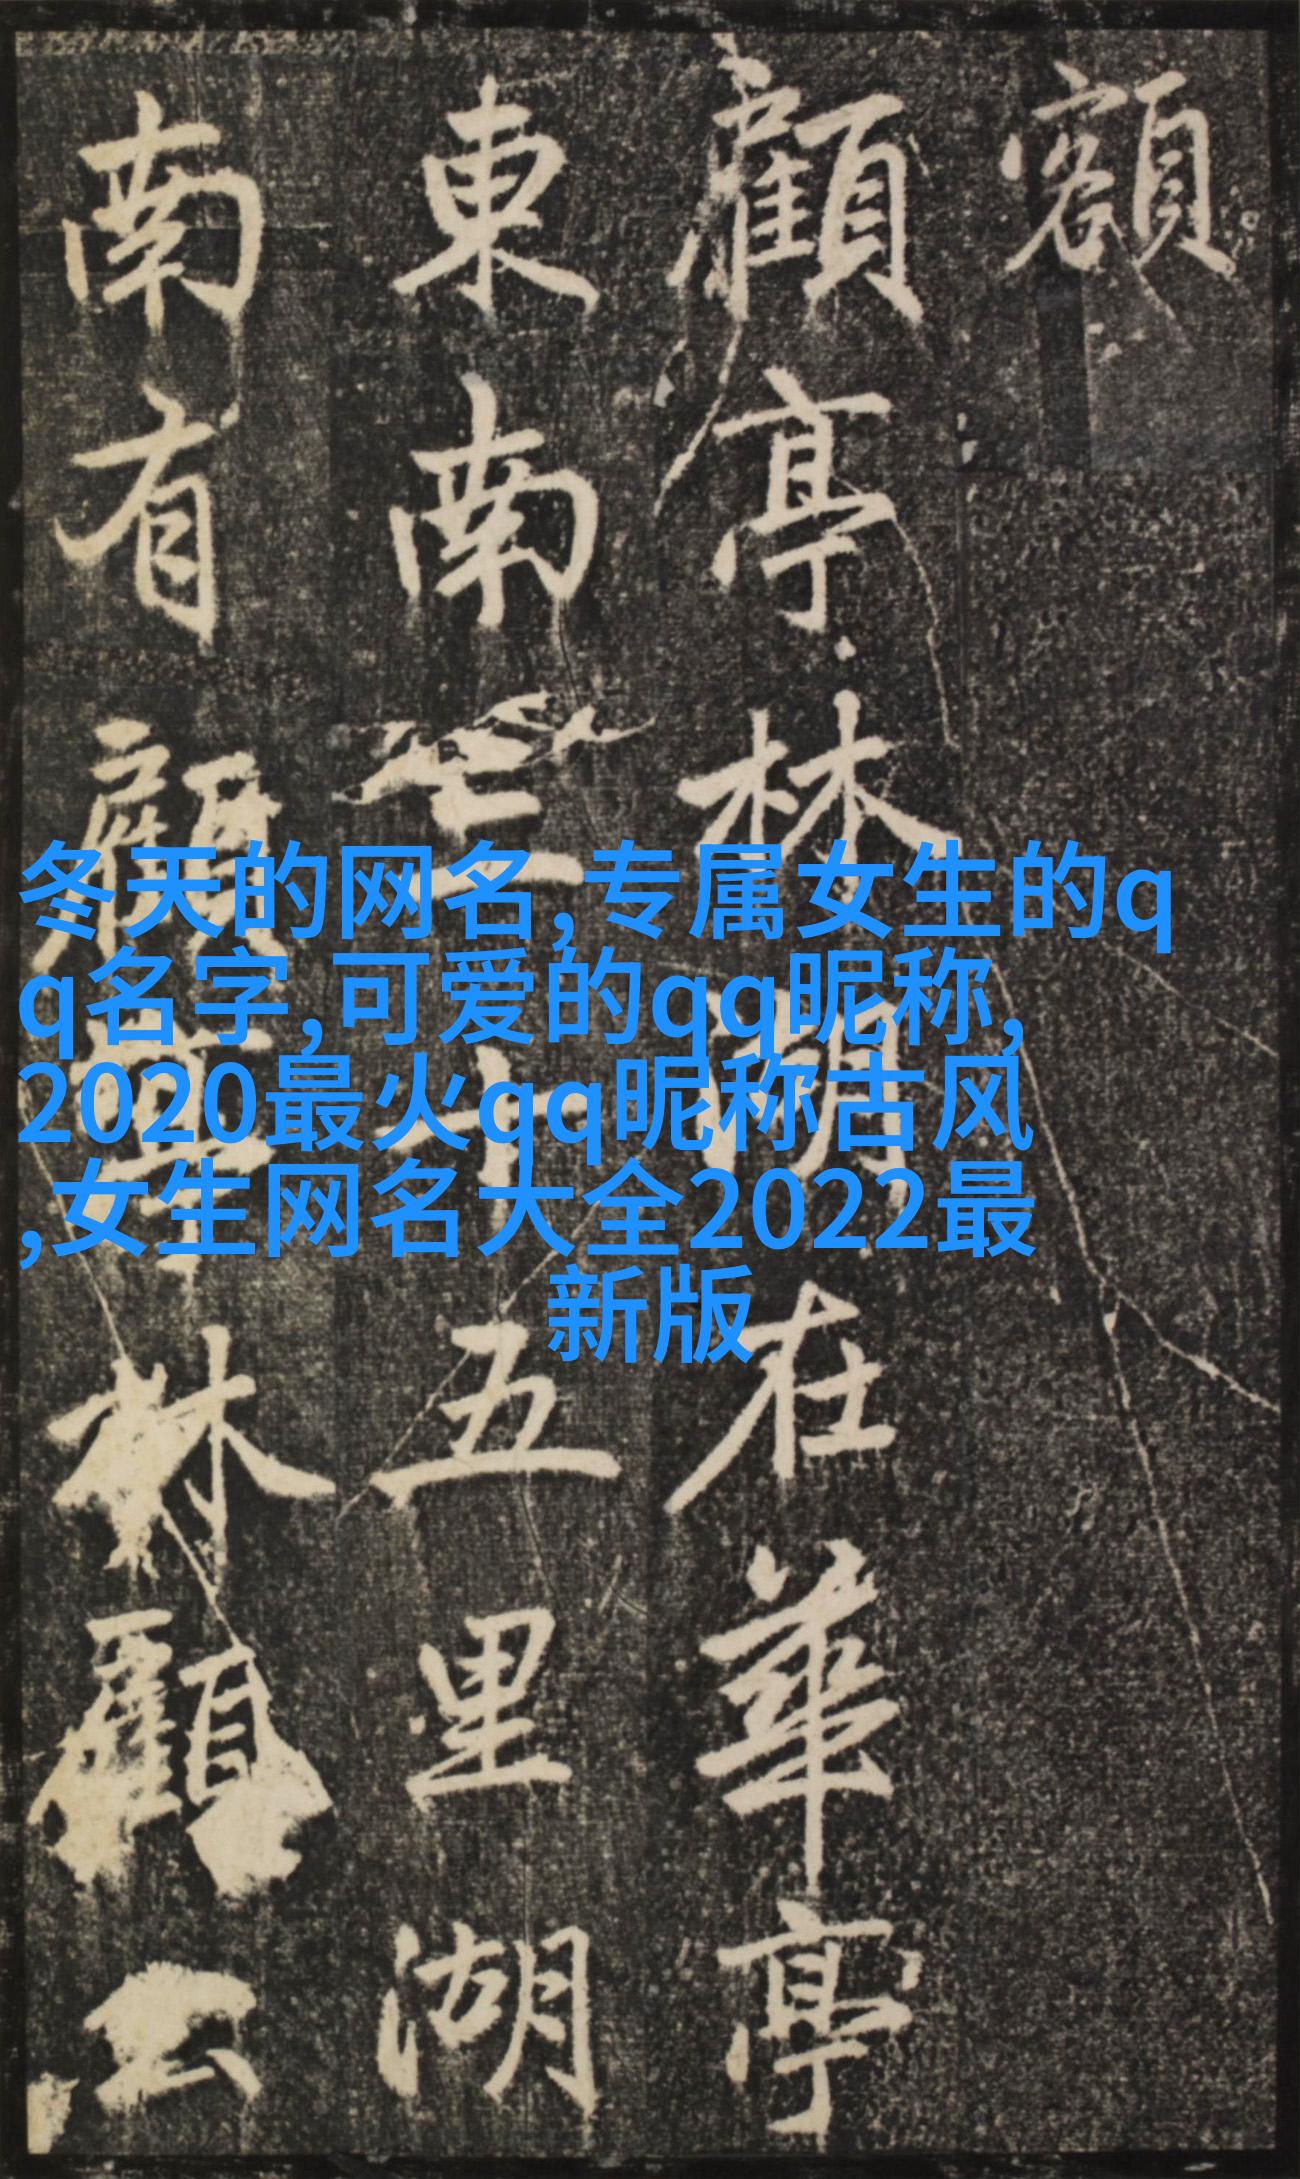 額
顧亭林湖在華亭
東南三十五里湖
南有顧林顧公
冬天的网名,专属女生的q
q名字,可爱的qq昵称,
2020最火qq昵称古风
,女生网名大全2022最
新版